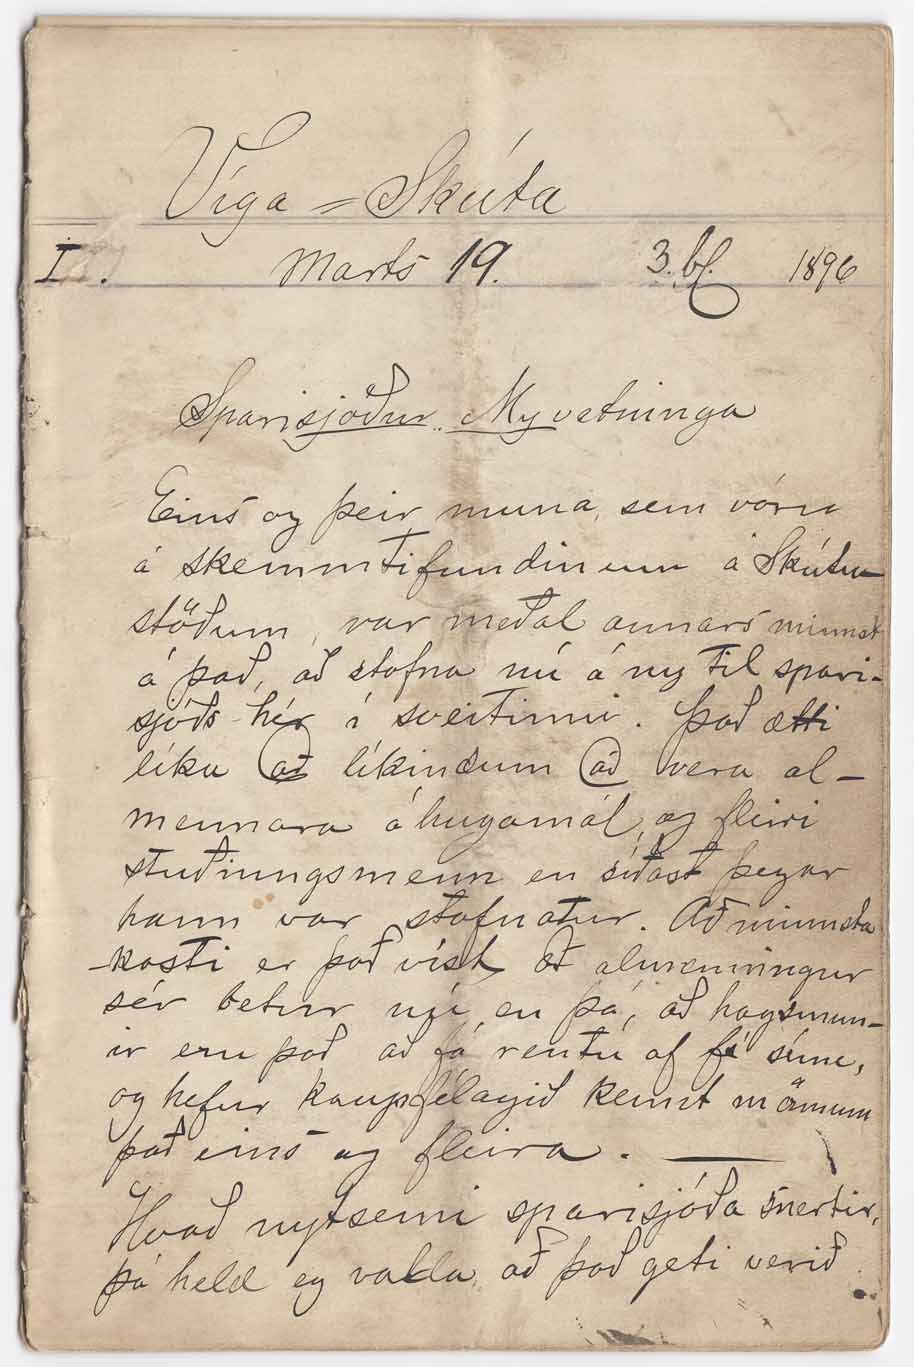 Víga-Skúta
I. Marts 19. 3. bl. 1896
Sparisjóður Myvetninga
Eins og þeir muna, sem vóru
á skemmtifundinum á Skútu-
stöðum, var meðal annars minnst
á það, að stofna nú á ny til spari-
sjóðs hér í sveitinni. Það ætti
líka að líkindum að vera al-
mennara áhugamál, og fleiri
stuðningsmenn en síðast þegar
hann var stofnatur. Að minnsta
kosti er það víst, að almenningur
sér betur nú en þá, að hagsmun-
ir eru það að fá rentu af fé sínu,
og hefur kaupfélagið kennt mönnum
það eins og fleira. —
Hvað nytsemi sparisjóða snertir,
þá held eg valla að það geti verið